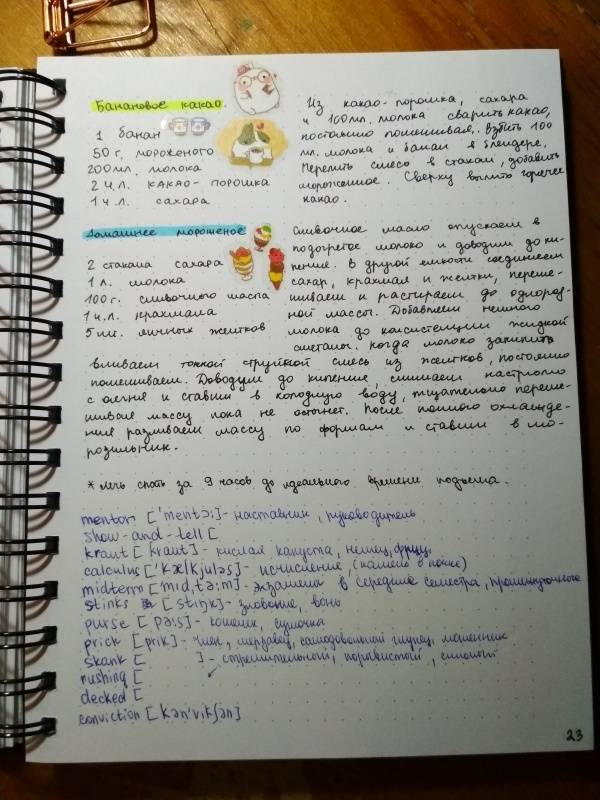 Банановое какао.
1 банан
50 г. мороженого
200 мл. молока
2 ч.л. какао-порошка
1 ч.л. сахара
Из какао-порошка, сахара
и 100 мл. молока сварить какао,
постоянно помешивая. Взбить 100
мл. молока и банан в блендере.
Перелить смесь в стакан, добавить
мороженное. Сверху вылить горячее
какао.
Домашнее мороженое
2 стакана сахара
1 л. молока
100 г. сливочного масла
1 ч.л. крахмала
5 шт. яичных желтков
Сливочное масло опускаем в
подогретое молоко и доводим до ки-
пения. В другой емкости соединяем
сахар, крахмал и желтки, переме-
шиваем и растираем до однород-
ной массы. Добавляем немного
молока до консистенции жидкой
сметаны. Когда молоко закипит
вливаем тонкой струйкой смесь из желтков, постоянно
помешиваем. Доводим до кипения, снимаем кастрюлю
с огня и ставим в холодную воду, тщательно переме-
шивая массу пока не остынет. После полного охлажде-
ния разливаем массу по формам и ставим в мо-
розильник.
* лечь спать за 9 часов до идеального времени подъема.
mentor ['mentɔ:] - наставник, руководитель
show-and-tell [
kraut [kraut] - кислая капуста, немец, фриц
calculus ['kælkjuləs] - исчисление, (камень в почке)
midterm [mɪd,tə:m] - экзамен в середине семестра, промежуточное
stinks [stiŋk] - зловоние, вонь
purse [pə:s] - кошелек, сумочка
prick [prik] - член, мерзавец, самодовольный глупец, мошенник
skank [ ] - стремительный, порывистый, сильный
rushing [
decked [
conviction [kən'vikʃən]
23